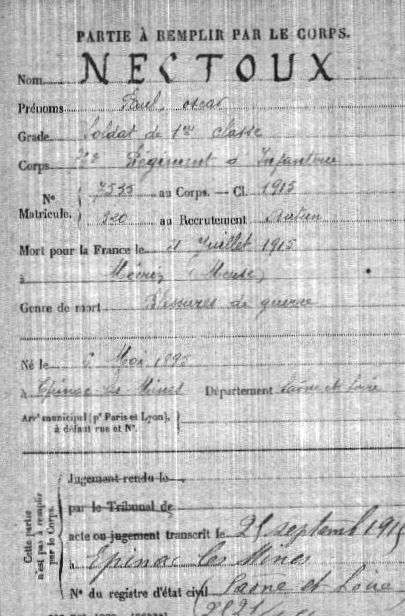 PARTIE À REMPLIR PAR LE CORPS.
Nom NECTOUX
Prénoms Paul, oscar
Grade Soldat de 1re classe
Corps Régiment d'Infanterie
No Matricule. 7535 au Corps. — Cl. 1915
820 au Recrutement Autun
Mort pour la France le Juillet 1915
à (Meuse)
Genre de mort Blessures de guerre
Né le Mai 1895
à Epinac les Mines Département Saône et Loire
Arrt municipal (pr Paris et Lyon),
à défaut rue et No.
Cette partie
n'est pas à remplir
par le Corps.
Jugement rendu le
par le Tribunal de
acte ou jugement transcrit le 25 septemb 1915
à Epinac les Mines
No du registre d'état civil Saone et Loire